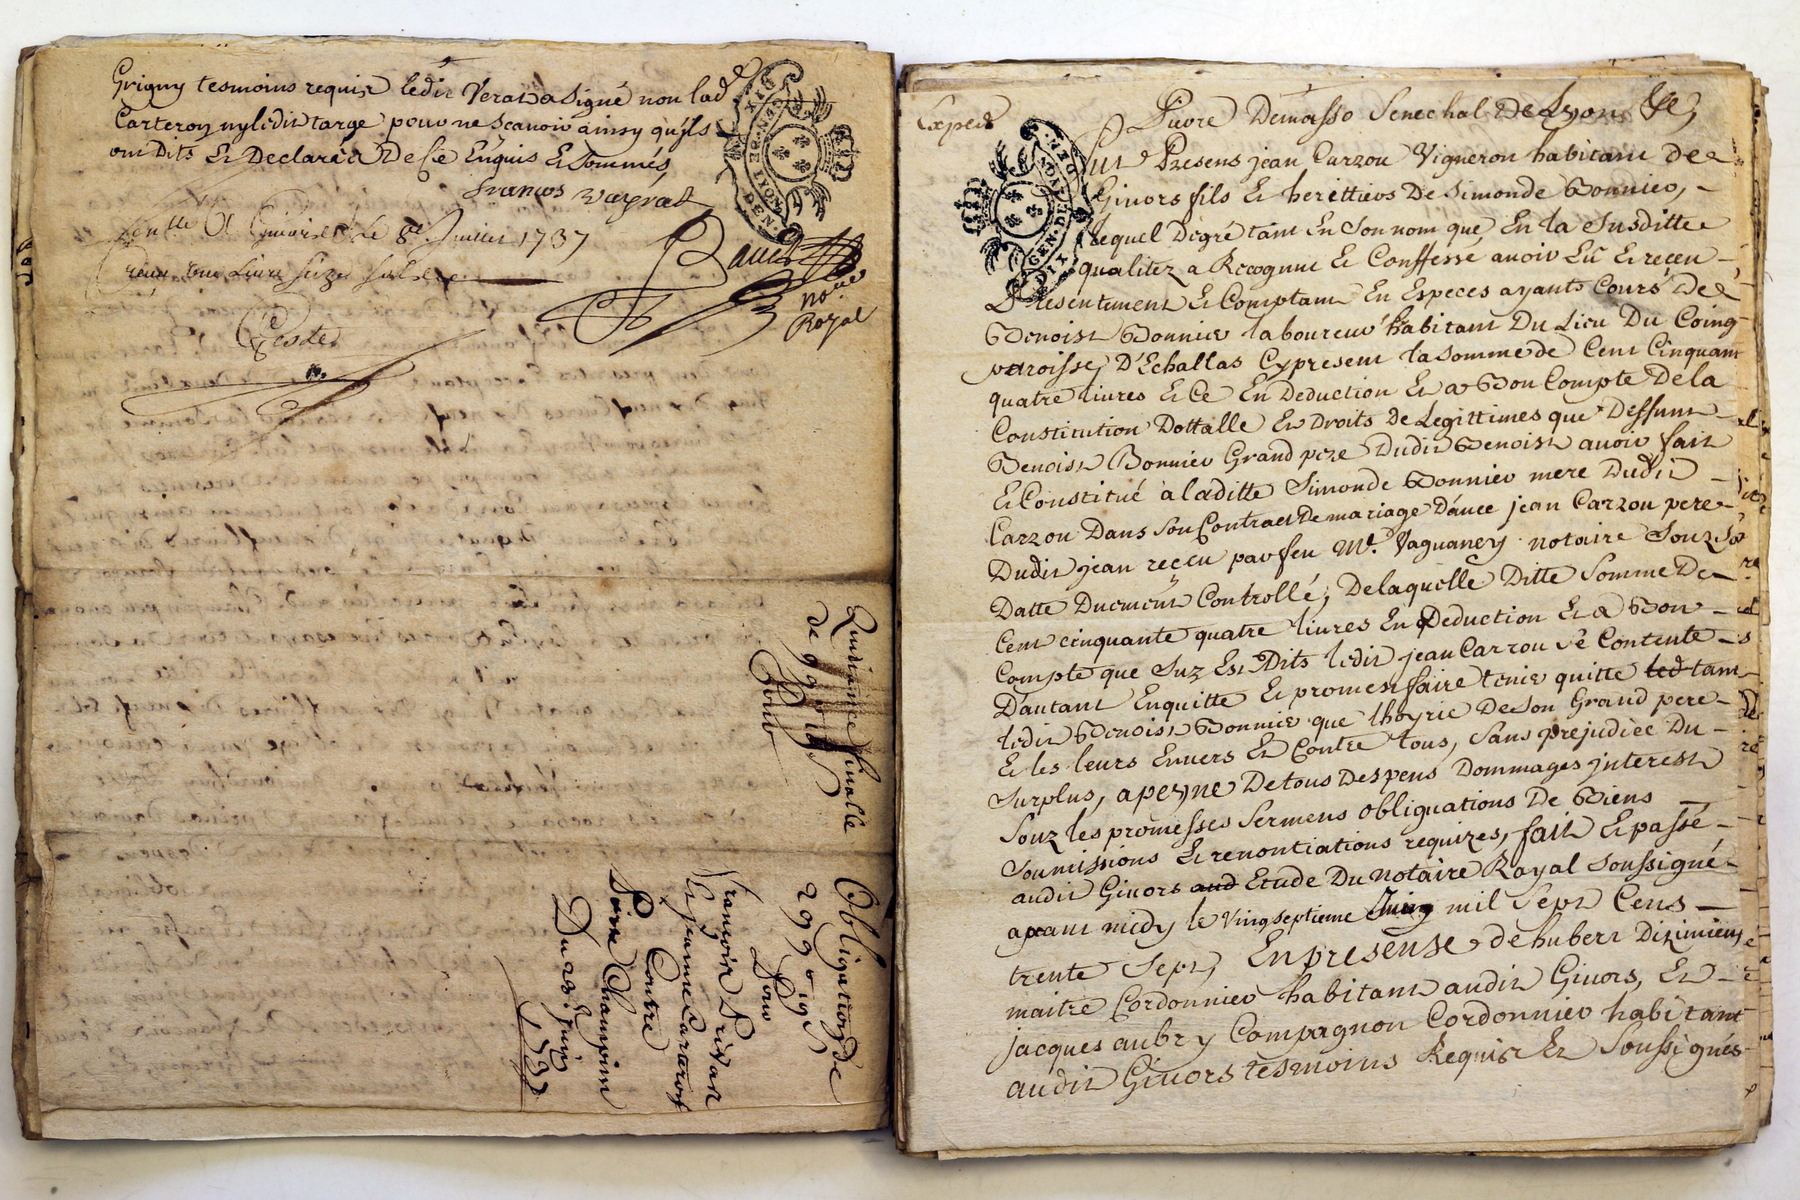 Grigny tesmoins requis ledit Verat a signé non lad.
Carteron ny ledit targe pour ne scavoir ainsy qu'ils
ont Dits Et Declarée De ce Enquis Et Sommés
francois
8e Juillet 1737
une Livre seize sols
nore
Royal
GEN. DE LYON
DIX DEN.
Quittance finalle
de 99
Pour
Obligation de
299
Pour
francois Privat
Et jeanne Carteron
Contre
Pierre Champin
Du 23. Juin
1737
Exped
Senechal De Lyon
GEN. DE LYON
DIX DEN.
fut Presens jean Carzou Vigneron habitant De
Givors fils Et herittier De Simonde Bonnier,
Lequel Dégré tant En Son nom que En la Susditte
qualitez a Recognu Et Conffessé avoir Eu Et receu
Presentement Et Comptant En Especes ayants Cours De
Benoist Bonnier laboureur habitant Du Lieu Du Coing
parroisse, D'Echallas Cypresent la Somme de Cent Cinquant
quatre livres Et Ce En Deduction Et a Bon Compte De la
Constitution Dottalle Et Droits De Legittimes que Deffunt
Benoist Bonnier Grand pere Dudit Benoist avoir fait
Et Constitué à laditte Simonde Bonnier mere Dudit
Carzou Dans Son Contract De mariage D'avec jean Carzou pere
Dudit jean receu par feu Me. Vaguaney notaire Souz Sa
Datte Duement Controllé, De laquelle Ditte Somme De
Cent cinquante quatre livres En Deduction Et a Bon
Compte que Suz Est Dits ledit jean Carzou Se Contente
D'autant Enquitte Et promet faire tenir quitte led tant
ledit Benoist Bonnier que l'hoyrie De Son Grand pere
Et les leurs Envers Et Contre tous, Sans préjudice Du
Surplus, a peyne De tous Despens Dommages jnterest
Souz les promesses Sermens obliguations De Biens
Soumissions Et renontiations requizes, fait Et passé
audit Givors aud Etude Du notaire Royal Soussigné
avant midy le Vingseptieme Juing mil Sept Cens
trente Sept, En presense de hubert
maitre Cordonnier habitant audit Givors, Et
jacques aubry Compagnon Cordonnier habitant
audit Givors tesmoins Requis Et Soussignés